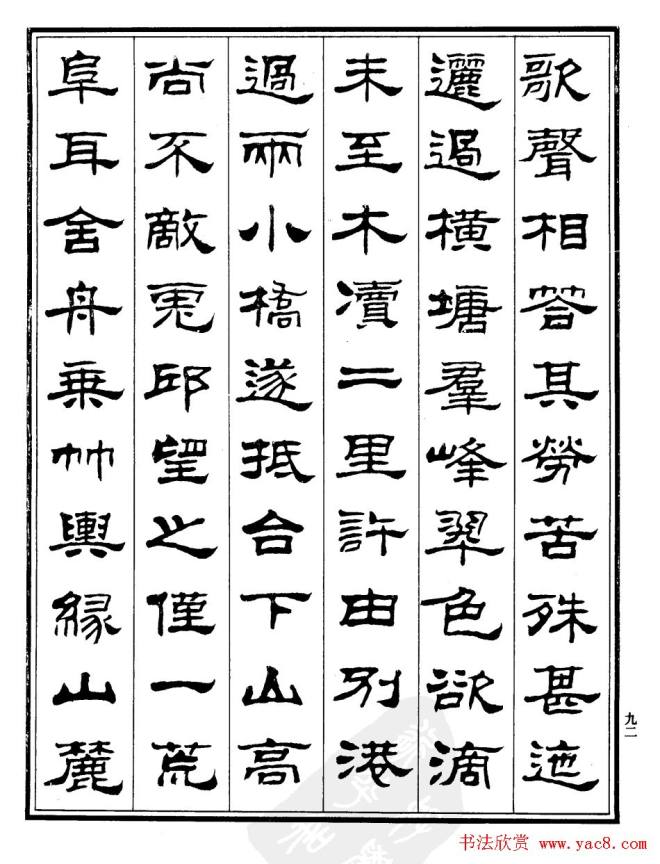 歌聲相荅其勞苦殊甚迆
邐過橫塘羣峰翠色欲滴
未至木瀆二里許由别港
過兩小橋遂抵台下山高
尚不敵兎邱望之僅一荒
阜耳舍舟乗竹輿緣山麓
九二
书法欣赏 www.yac8.com